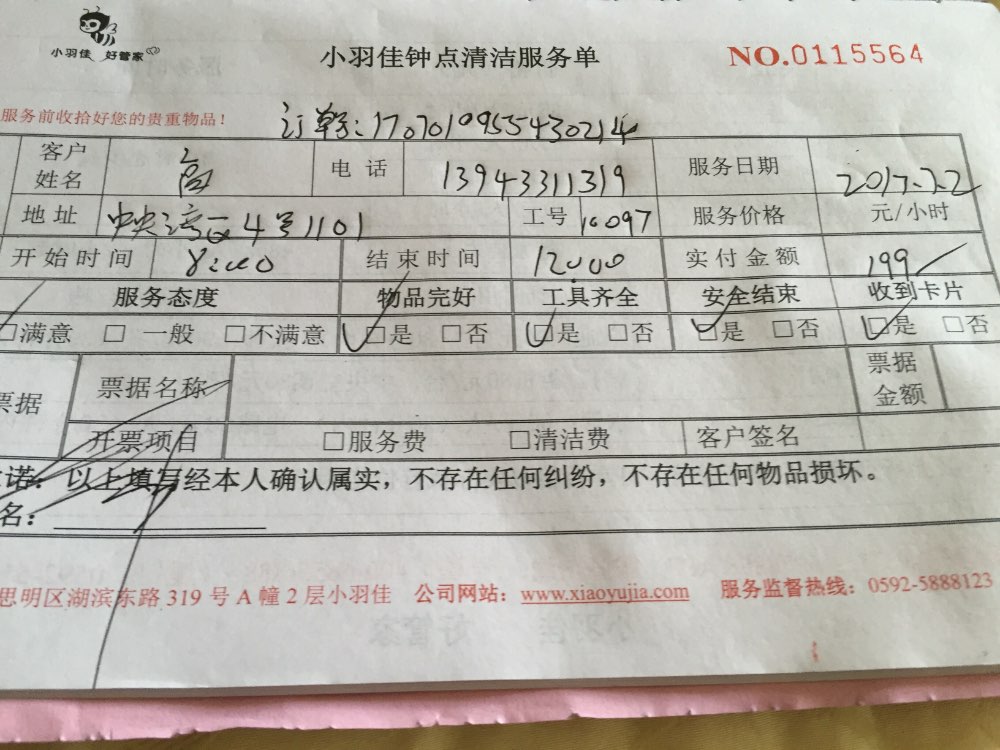 小羽佳 好管家
小羽佳钟点清洁服务单
NO.0115564
服务前收拾好您的贵重物品!
订单号:1707010955430214
客户姓名 高 电话 13943311319 服务日期 2017.7.2
地址 中央湾区4号1101 工号 10097 服务价格 元/小时
开始时间 8:00 结束时间 12:00 实付金额 199
服务态度 物品完好 工具齐全 安全结束 收到卡片
□满意 □一般 □不满意 □是 □否 □是 □否 □是 □否 □是 □否
票据 票据名称 票据金额
开票项目 □服务费 □清洁费 客户签名
诺:以上填写经本人确认属实,不存在任何纠纷,不存在任何物品损坏。
名:
思明区湖滨东路 319 号 A 幢 2 层小羽佳 公司网站:www.xiaoyujia.com 服务监督热线:0592-5888123